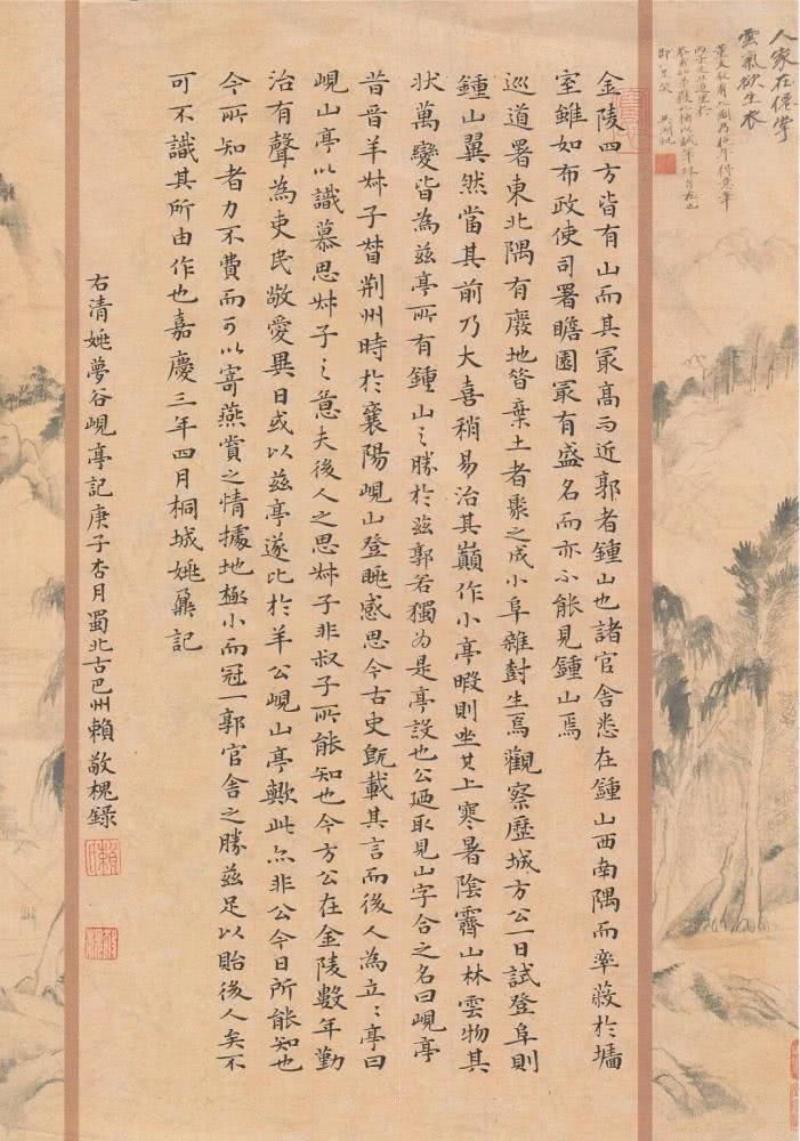 人家在僊掌
雲氣欲生衣
金陵四方皆有山而其冣高而近郭者鍾山也諸官舍悉在鍾山西南隅而率蔽於墻
室雖如布政使司署瞻園冣有盛名而亦不能見鍾山焉
巡道署東北隅有廢地昔棄土者聚之成小阜雜尌生焉觀察歷城方公一日試登阜則
鍾山翼然當其前乃大喜稍易治其巔作小亭暇則坐其上寒暑陰霽山林雲物其
狀萬變皆為茲亭所有鍾山之勝於茲郭若獨為是亭設也公迺取見山字合之名曰峴亭
昔晉羊叔子督荆州時於襄陽峴山登眺感思今古史既載其言而後人為立〻亭曰
峴山亭以識慕思叔子之意夫後人之思叔子非叔子所能知也今方公在金陵數年勤
治有聲為吏民敬愛異日或以茲亭遂比於羊公峴山亭歟此亦非公今日所能知也
今所知者力不費而可以寄燕賞之情據地極小而冠一郭官舍之勝茲足以貽後人矣不
可不識其所由作也嘉慶三年四月桐城姚鼐記
右清姚夢谷峴亭記庚子杏月蜀北古巴州賴敬槐錄